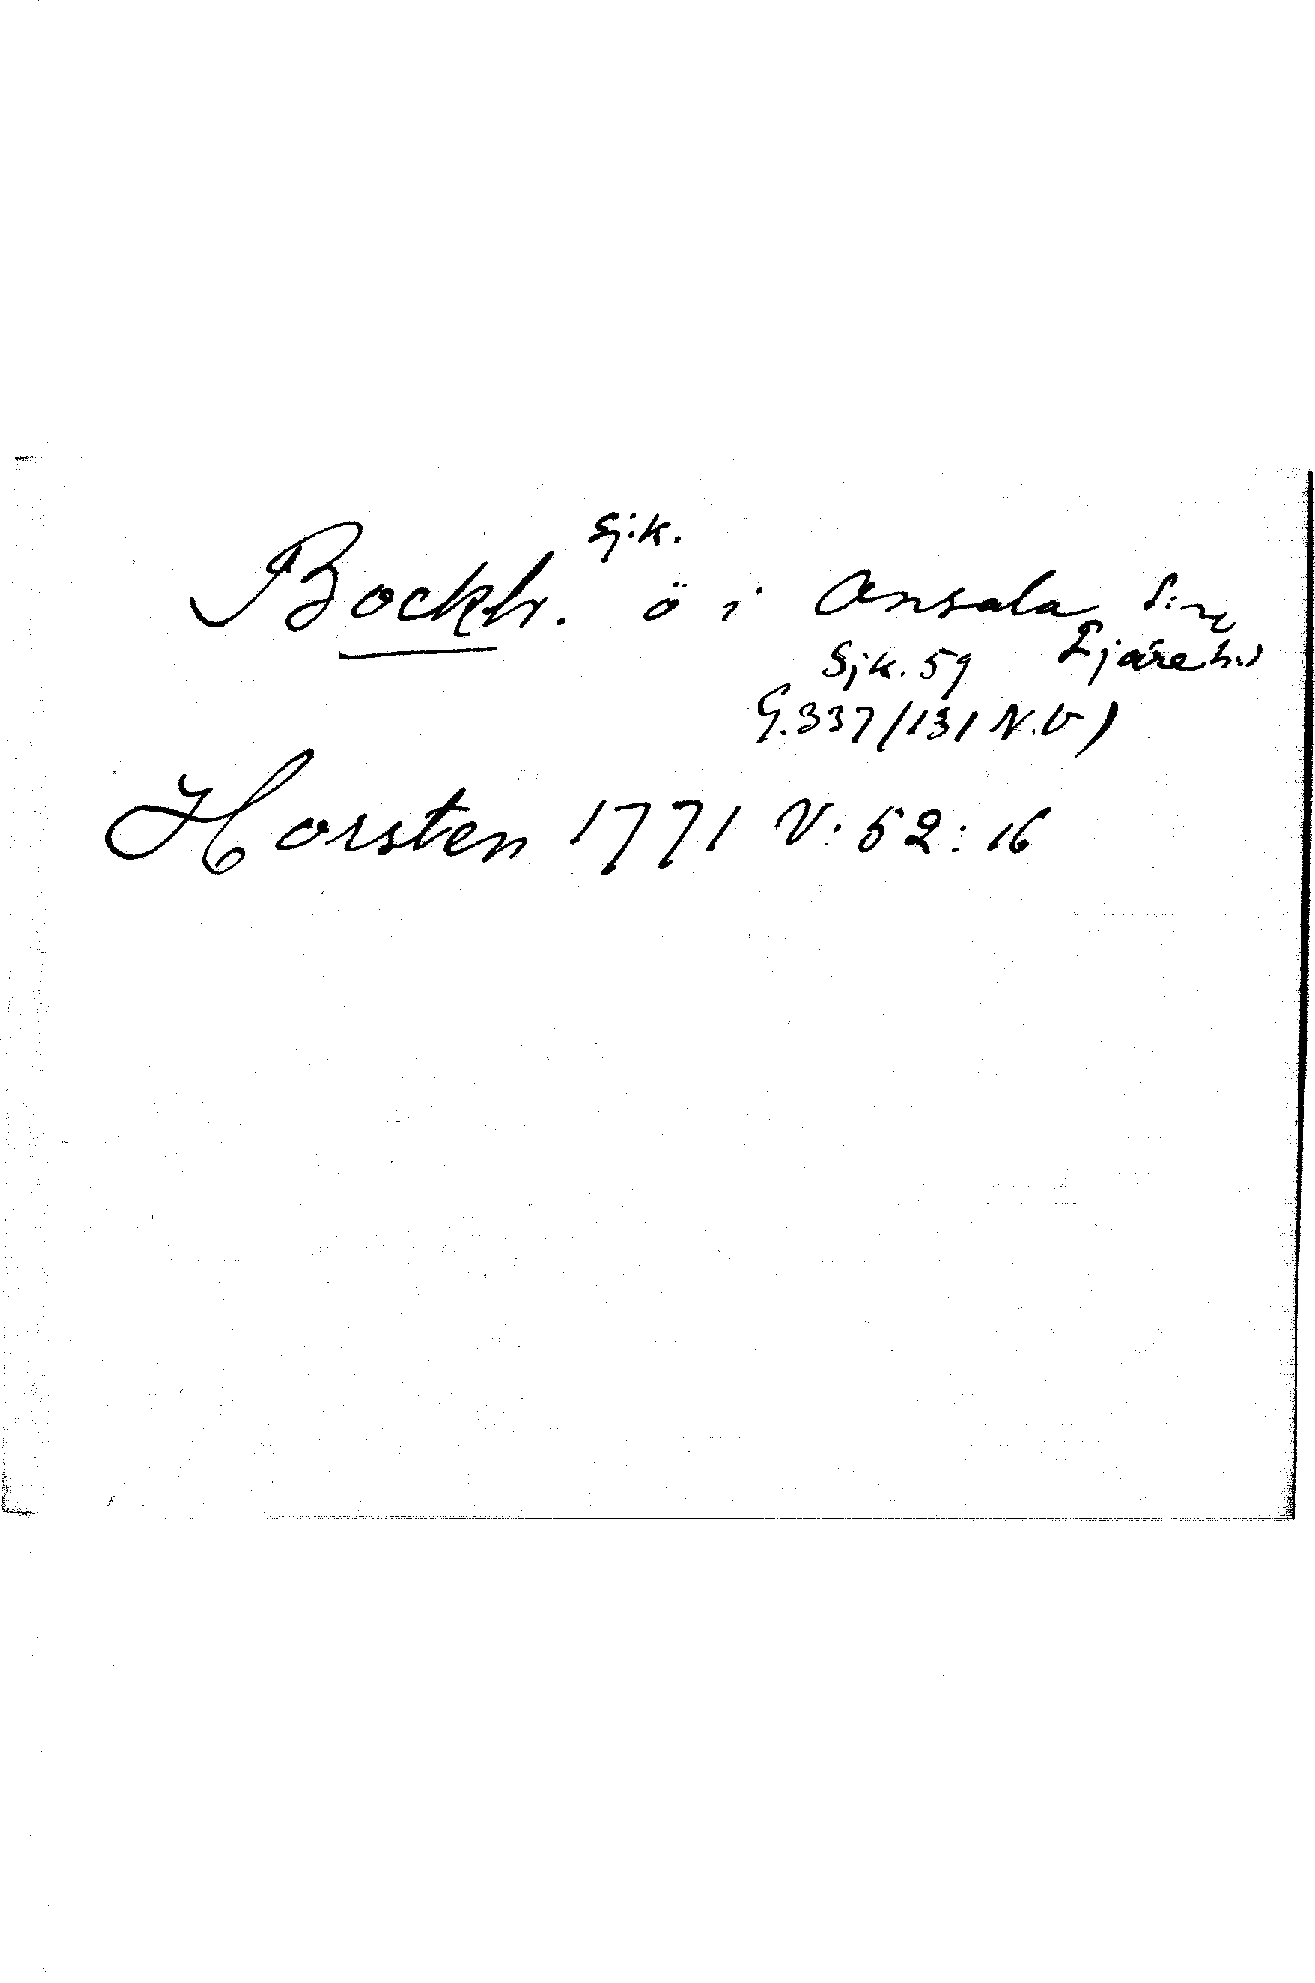 Sjk.
Bockh. ö i Onsala S:n
Sjk. 59 Fjäre hd
G.337/131 N.V)
Horsten 1771 V. 52:16